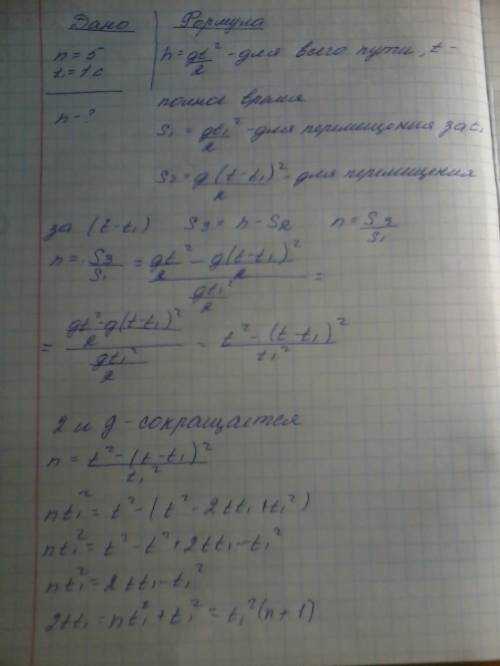 Дано | Формула
n = 5 | h = gt²/2 - для всего пути, t -
t₁ = 1c
полное время
h - ?
S₁ = gt₁²/2 - для перемещения за t₁
S₂ = g(t-t₁)²/2 - для перемещения
за (t-t₁) S₃ = h - S₂ n = S₃/S₁
n = S₃/S₁ = (gt²/2 - g(t-t₁)²/2)/(gt₁²/2) =
= ((gt²-g(t-t₁)²)/2)/(gt₁²/2) = (t²-(t-t₁)²)/t₁²
2 и g - сокращается
n = (t²-(t-t₁)²)/t₁²
nt₁² = t² - (t² - 2tt₁ + t₁²)
nt₁² = t² - t² + 2tt₁ - t₁²
nt₁² = 2tt₁ - t₁²
2tt₁ = nt₁² + t₁² = t₁²(n+1)